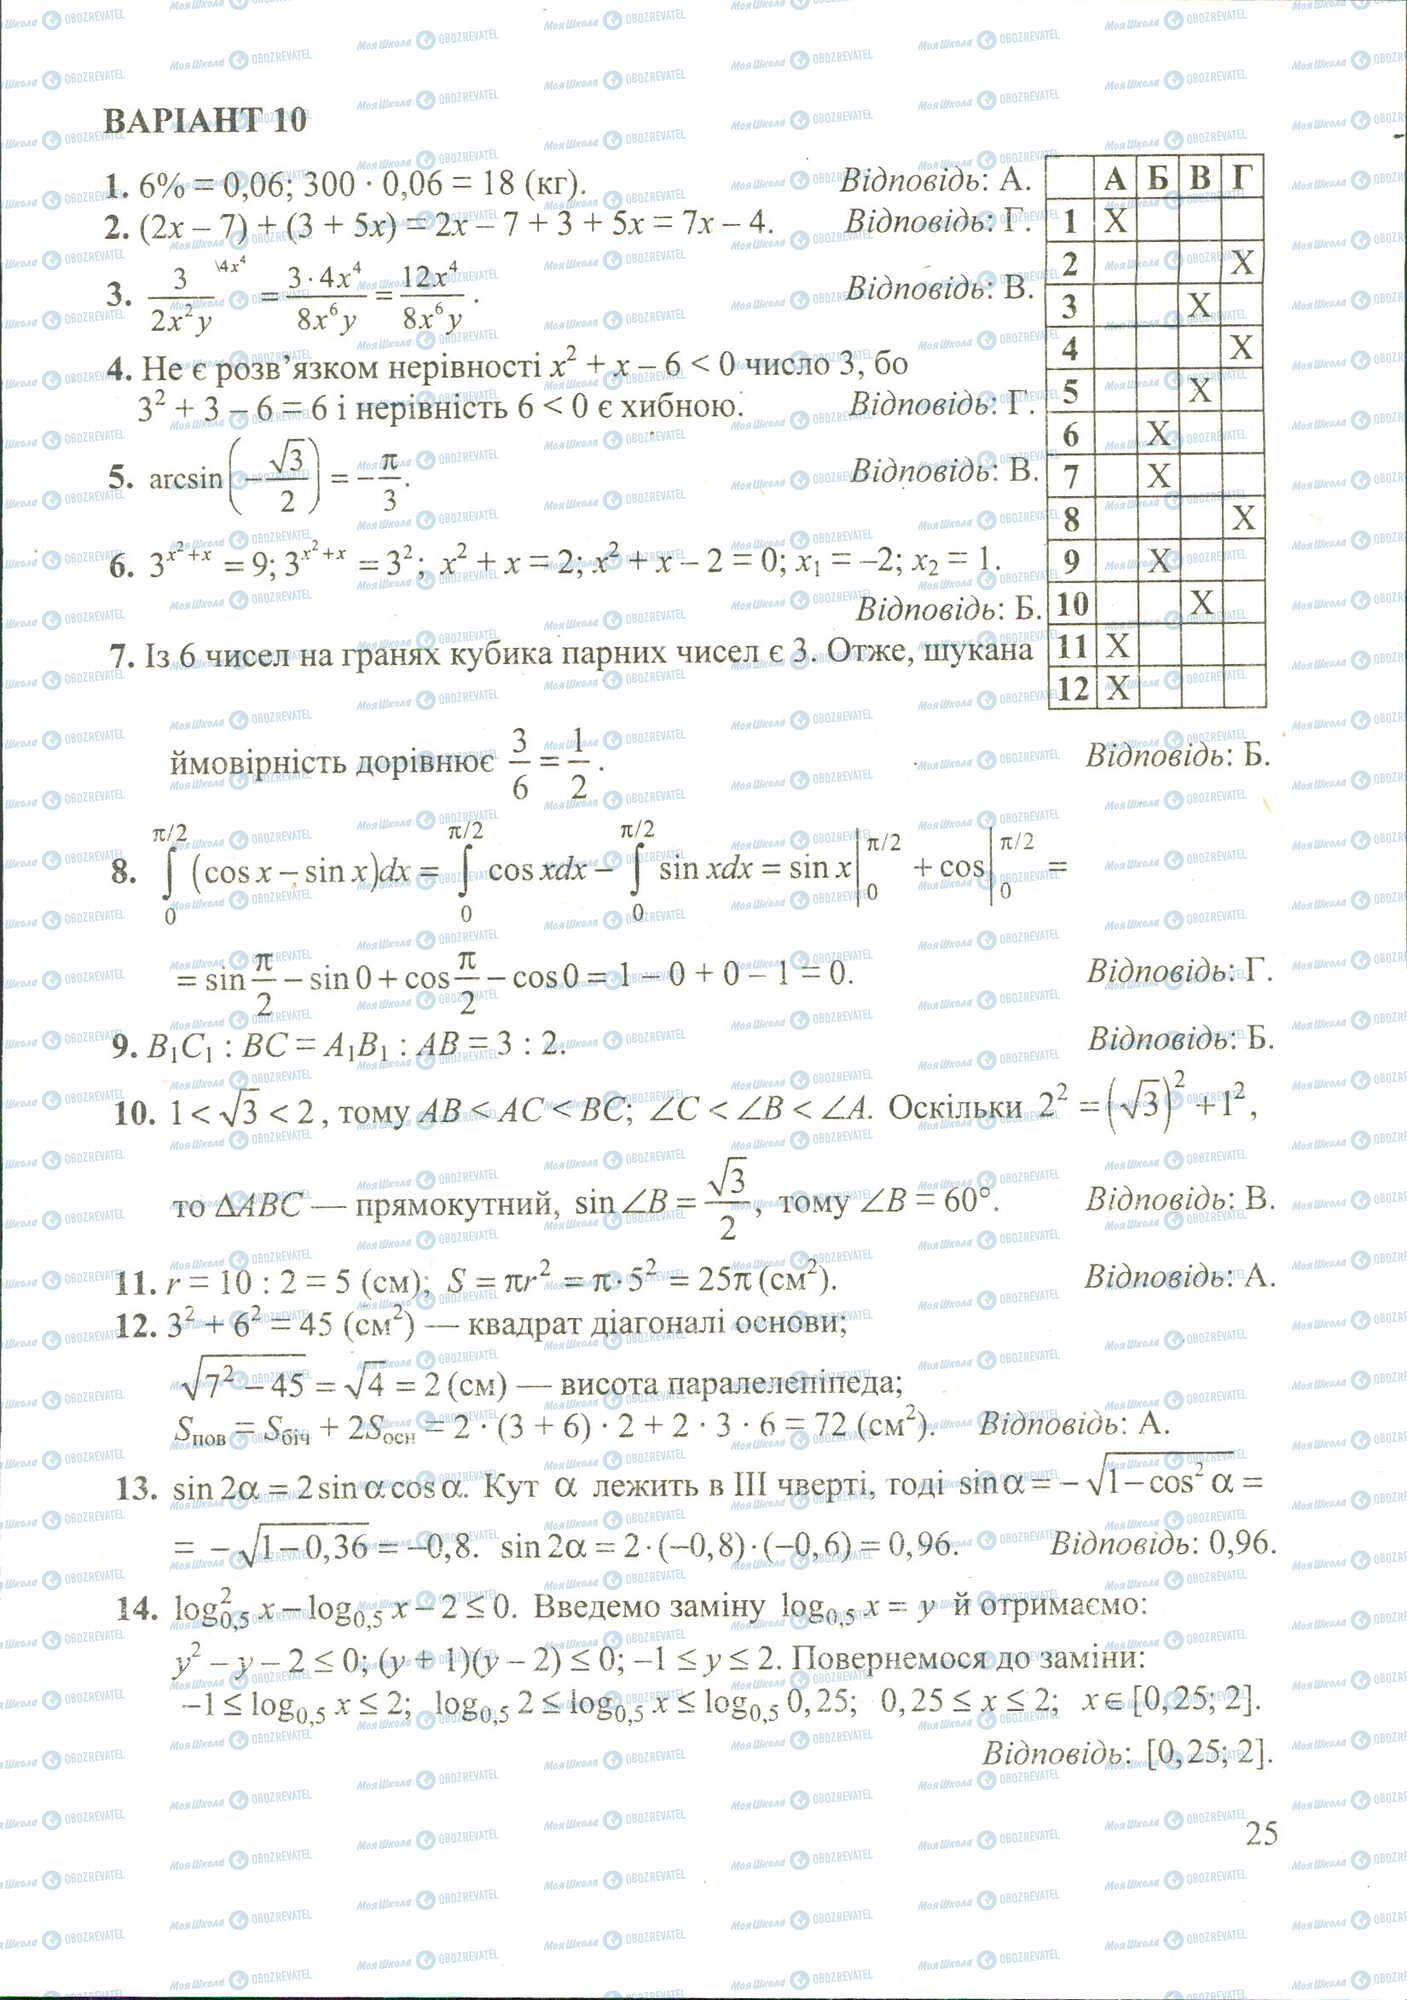 ВАРІАНТ 10
1. 6% = 0,06; 300 · 0,06 = 18 (кг). Відповідь: А.
2. (2x – 7) + (3 + 5x) = 2x – 7 + 3 + 5x = 7x – 4. Відповідь: Г.
3. 3/(2x²y) \4x⁴ = (3·4x⁴)/(8x⁶y) = 12x⁴/(8x⁶y). Відповідь: В.
4. Не є розв’язком нерівності x² + x – 6 < 0 число 3, бо
3² + 3 – 6 = 6 і нерівність 6 < 0 є хибною. Відповідь: Г.
5. arcsin(–√3/2) = –π/3. Відповідь: В.
6. 3^(x²+x) = 9; 3^(x²+x) = 3²; x² + x = 2; x² + x – 2 = 0; x₁ = –2; x₂ = 1.
Відповідь: Б.
7. Із 6 чисел на гранях кубика парних чисел є 3. Отже, шукана
А Б В Г
1 X
2 X
3 X
4 X
5 X
6 X
7 X
8 X
9 X
10 X
11 X
12 X
ймовірність дорівнює 3/6 = 1/2. Відповідь: Б.
8. ∫₀^(π/2) (cos x – sin x)dx = ∫₀^(π/2) cos xdx – ∫₀^(π/2) sin xdx = sin x|₀^(π/2) + cos|₀^(π/2) =
= sin π/2 – sin 0 + cos π/2 – cos 0 = 1 – 0 + 0 – 1 = 0. Відповідь: Г.
9. B₁C₁ : BC = A₁B₁ : AB = 3 : 2. Відповідь: Б.
10. 1 < √3 < 2, тому AB < AC < BC; ∠C < ∠B < ∠A. Оскільки 2² = (√3)² + 1²,
то ΔABC — прямокутний, sin ∠B = √3/2, тому ∠B = 60°. Відповідь: В.
11. r = 10 : 2 = 5 (см); S = πr² = π·5² = 25π (см²). Відповідь: А.
12. 3² + 6² = 45 (см²) — квадрат діагоналі основи;
√(7² – 45) = √4 = 2 (см) — висота паралелепіпеда;
Sпов = Sбіч + 2Sосн = 2 · (3 + 6) · 2 + 2 · 3 · 6 = 72 (см²). Відповідь: А.
13. sin 2α = 2 sin α cos α. Кут α лежить в III чверті, тоді sin α = –√(1 – cos² α) =
= –√(1 – 0,36) = –0,8. sin 2α = 2·(–0,8)·(–0,6) = 0,96. Відповідь: 0,96.
14. log²₀,₅ x – log₀,₅ x – 2 ≤ 0. Введемо заміну log₀,₅ x = y й отримаємо:
y² – y – 2 ≤ 0; (y + 1)(y – 2) ≤ 0; –1 ≤ y ≤ 2. Повернемося до заміни:
–1 ≤ log₀,₅ x ≤ 2; log₀,₅ 2 ≤ log₀,₅ x ≤ log₀,₅ 0,25; 0,25 ≤ x ≤ 2; x ∈ [0,25; 2].
Відповідь: [0,25; 2].
25
Моя Школа OBOZREVATEL